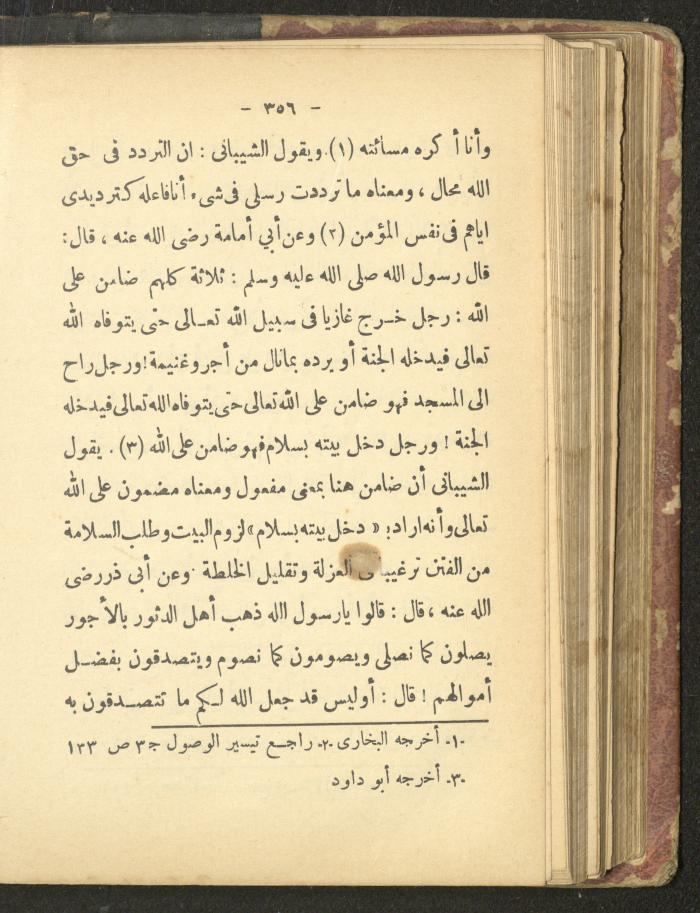 - ٣٥٦ -
وأنا أكره مسائته (١). ويقول الشيبانى : ان التردد فى حق
الله محال ، ومعناه ما ترددت رسلى فى شىء أنا فاعله كترديدى
اياهم فى نفس المؤمن (٢) وعن أبي أمامة رضى الله عنه ، قال :
قال رسول الله صلى الله عليه وسلم : ثلاثة كلهم ضامن على
الله : رجل خرج غازيا فى سبيل الله تعالى حتى يتوفاه الله
تعالى فيدخله الجنة أو يرده بما نال من أجر وغنيمة ! ورجل راح
الى المسجد فهو ضامن على الله تعالى حتى يتوفاه الله تعالى فيدخله
الجنة ! ورجل دخل بيته بسلام فهو ضامن على الله (٣) . يقول
الشيبانى أن ضامن هنا بمعنى مفعول ومعناه مضمون على الله
تعالى وأنه اراد بـ « دخل بيته بسلام » لزوم البيت وطلب السلامة
من الفتن ترغيبا فى العزلة وتقليل الخلطة . وعن أبى ذر رضى
الله عنه ، قال : قالوا يارسول الله ذهب أهل الدثور بالأجور
يصلون كما نصلى ويصومون كما نصوم ويتصدقون بفضل
أموالهم ! قال : أوليس قد جعل الله لكم ما تتصدقون به
-١- أخرجه البخارى -٢- راجع تيسير الوصول ج ٣ ص ١٣٣
-٣- أخرجه أبو داود